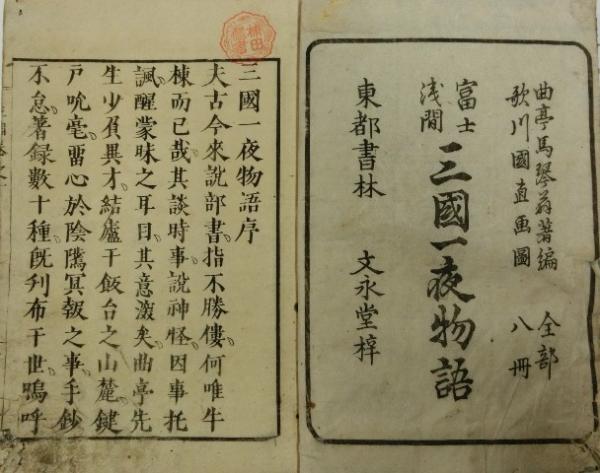 曲亭馬琴翁著編 全部
歌川國直画圖 八冊
富士
浅間
三國一夜物語
東都書林 文永堂梓
三國一夜物語序
夫古今來說部書指不勝僂何唯牛
棟而已哉其談時事說神怪因事托
諷醒蒙昧之耳目其意激矣曲亭先
生少負異才結廬于飯台之山麓鍵
戸吮毫畱心於陰隲冥報之事手鈔
不怠著録数十種既刋布于世嗚呼